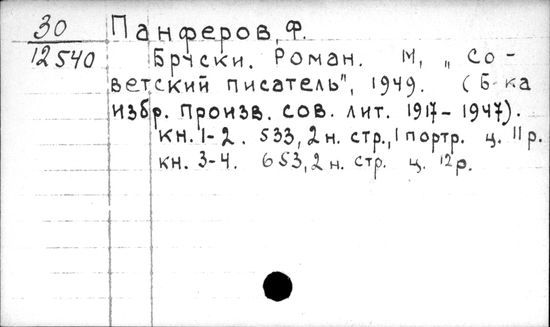 30
12540
Панферов, Ф.
Бруски. Роман. М, „Со-
ветский писатель", 1949. (Б-ка
избр. произв. сов. лит. 1917-1947).
кн. 1-2. 533, 2 н. стр., 1 портр. ц. 11 р.
кн. 3-4. 653, 2 н. стр. ц. 12 р.